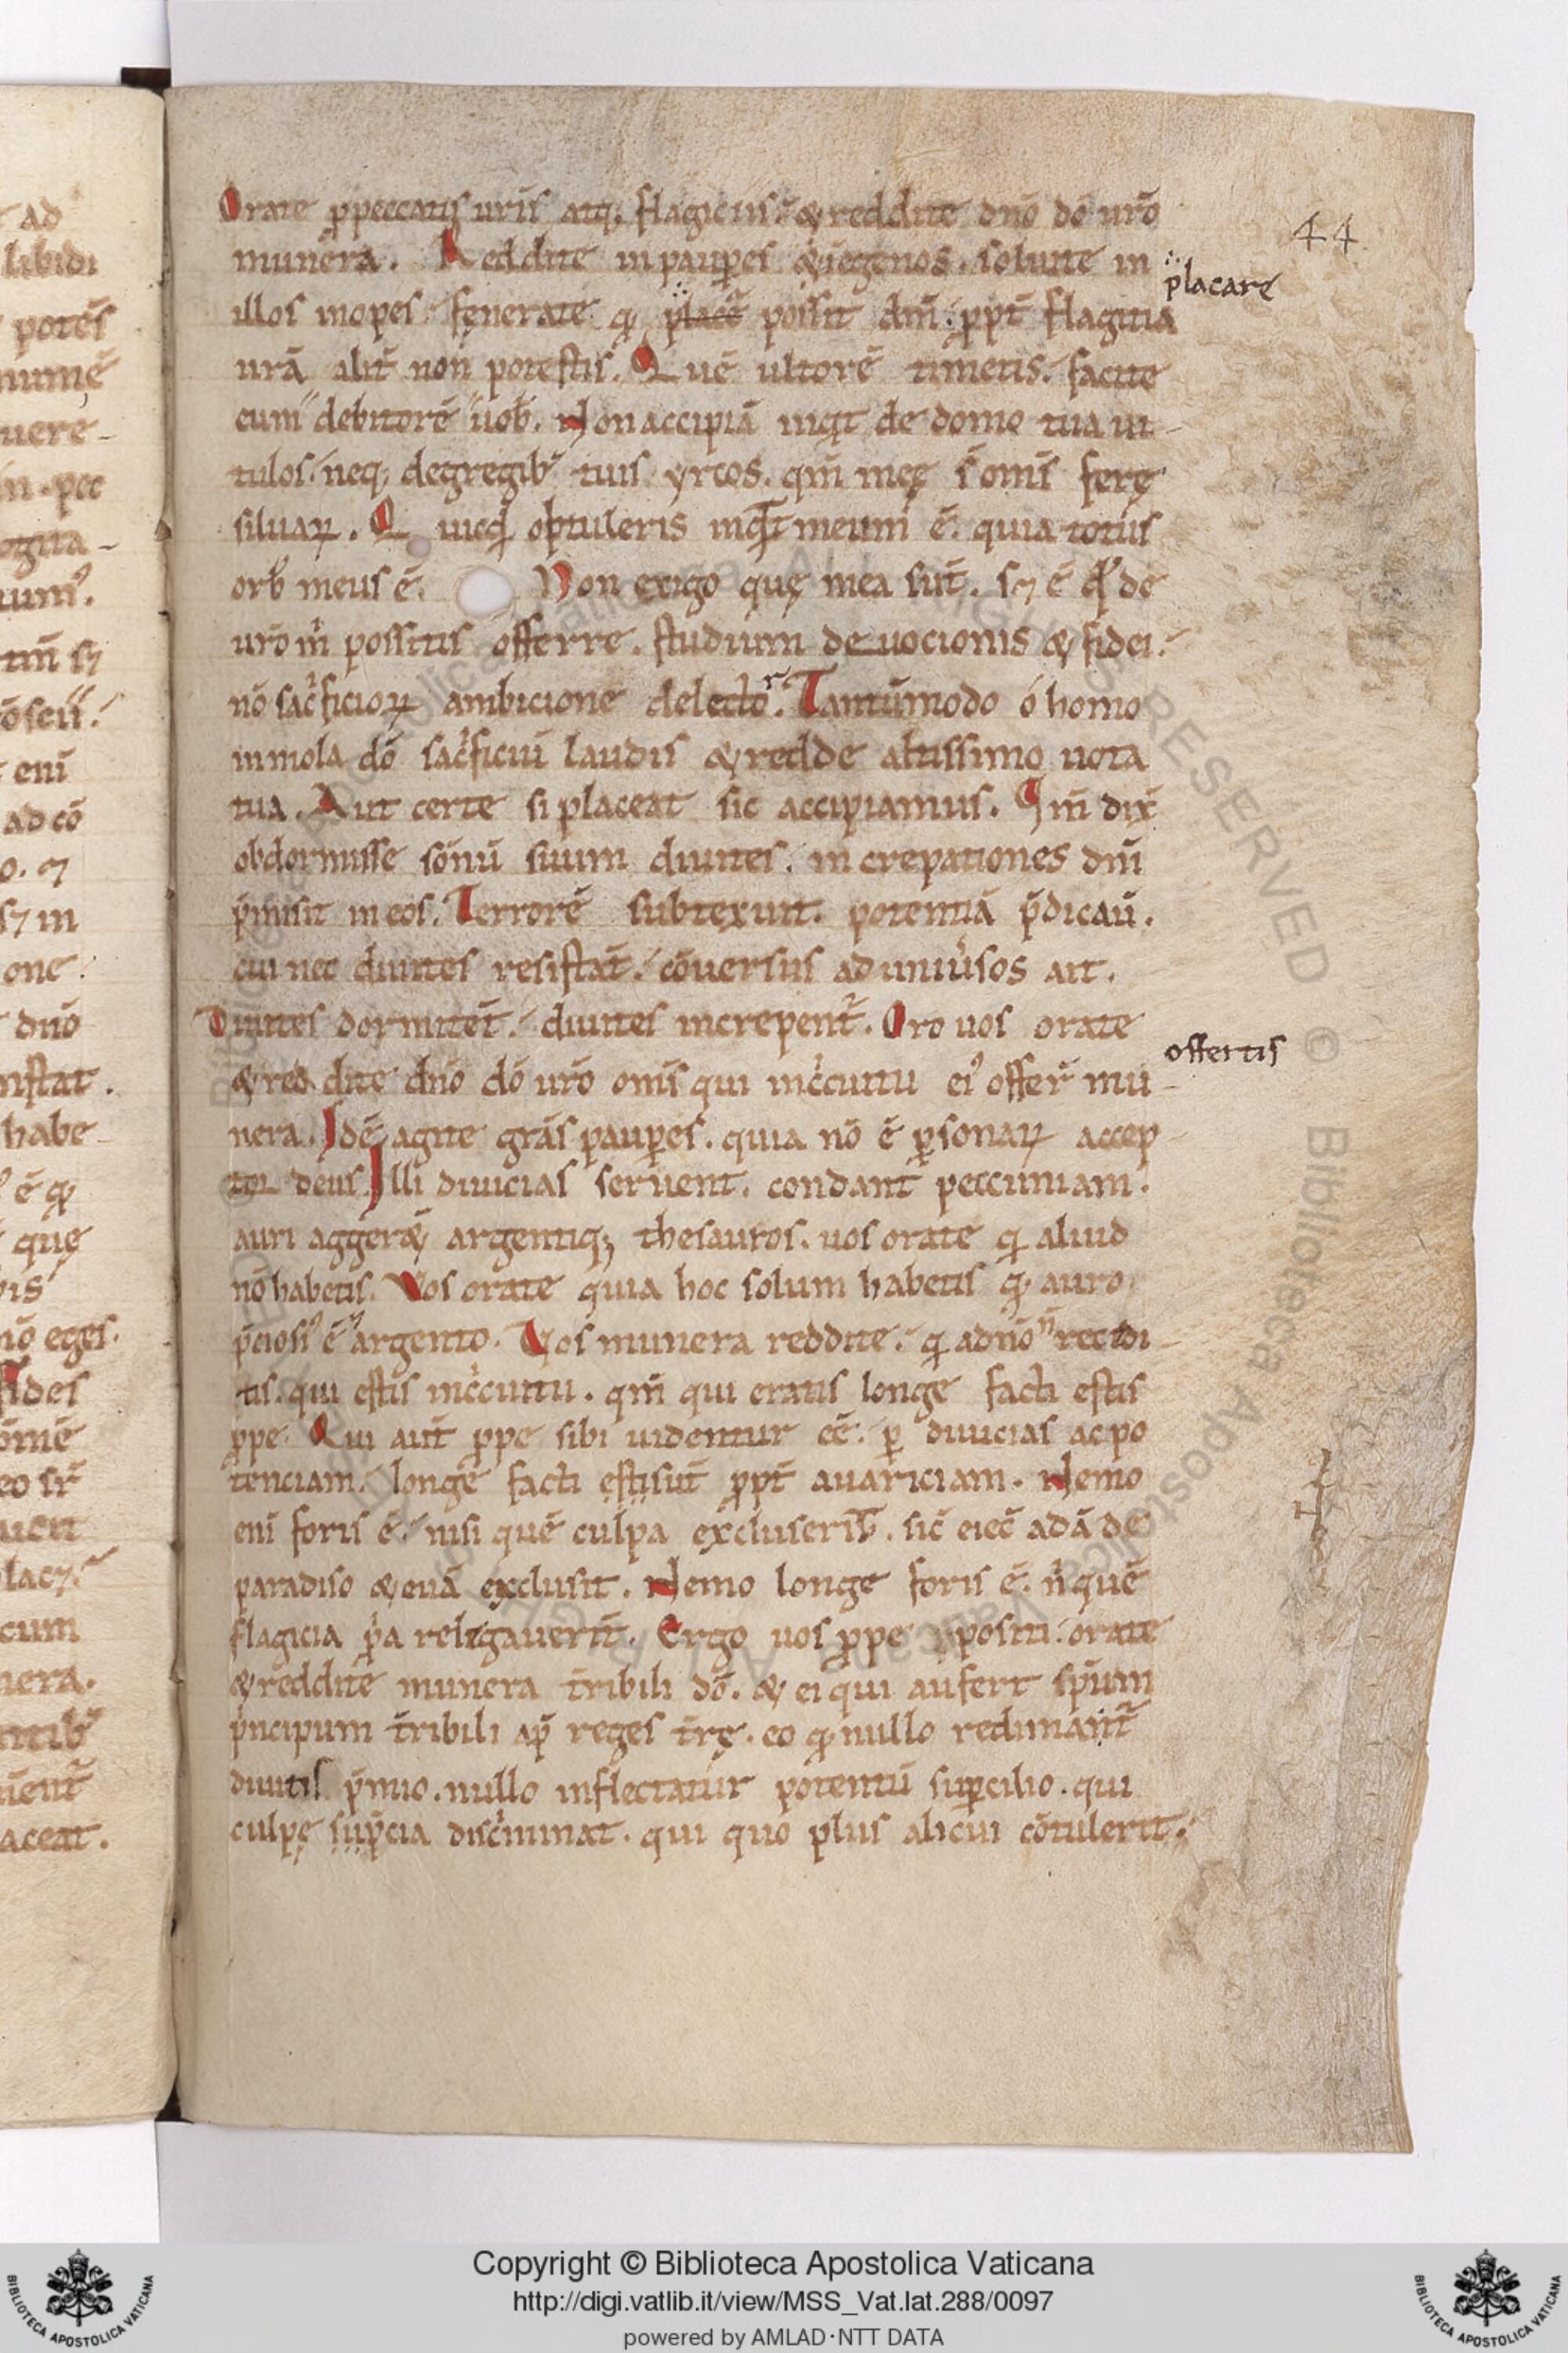 44
Orate ꝓ peccatis ur̄is atq; flagiciis. & reddite dn̄o dō ur̄o
munera. Reddite in pauꝑes & egenos. soluite in
placare
illos inopes fęnerate qđ placar̄ possit dn̄m. ꝓpt̄ flagitia
ur̄a alit̄ non potestis. Quē ultorē timetis. facite
eum debitorē uob̄. Non accipiā inq̇t de domo tua ui-
tulos. neq; de gregib; tuis yrcos. qm̄ meę s̄ om̄s ferę
siluaꝝ. Quicqđ optuleris inquit meum ē. quia totus
orb̄ meus ē. Non exigo quę mea sūt. sꝫ ē qđ de
ur̄o m̄ possitis offerre. studium deuocionis & fidei.
nō sac̄ficioꝝ ambicione delector. Tantūmodo o homo
inmola dō sac̄ficiū laudis & redde altissimo uota
tua. Aut certe si placeat sic accipiamus. Qm̄ dix̄
obdormisse sōnū suum diuites. increpationes dn̄i
p̄misit in eos. Terrorē subtexuit. potentiā p̄dicaū.
cui nec diuites resistāt. cōuersus ad uniūsos ait.
Diuites dormitēt. diuites increpent̄. Oro uos orate
& reddite dn̄o dō ur̄o om̄s qui in c̄cuitu ei᷒ offer̄ mu-
offertis
nera. Idē agite grās pauꝑes. quia nō ē ꝑsonaꝝ accep-
tor deus. Illi diuicias seruent. condant peccuniam.
auri aggerē & argentiq; thesauros. uos orate qi aliud
nō habetis. Vos orate quia hoc solum habetis qđ auro
p̄ciosi᷒ ē & argento. Vos munera reddite. qi ad n̄o recedi-
tis. qui estis in c̄cuitu. qm̄ qui eratis longe facti estis
ꝓpe. Qui aut̄ ꝓpe sibi uidentur ēē. ꝑ diuicias ac po
tenciam. longe facti estisūt ꝓpt̄ auariciam. Nemo
eni foris ē. nisi quē culpa excluserit. sic̄ eiec̄ adā de
paradiso & euā exclusit. Nemo longe foris ē. n̄ quē
flagicia p̄a religauerīt. Ergo uos ꝓpe positi. orate
& reddite munera t̄ribili dō. & ei qui aufert sp̄um
p̄ncipum t̄ribili ap̄ reges t̄rę. eo qđ nullo redimant̄
diuitis p̄mio. nullo inflectatur potentū suꝑcilio. qui
culpę sup̄cia disc̄minat. qui quo plus alicui cōtulerit.
Copyright © Biblioteca Apostolica Vaticana
http://digi.vatlib.it/view/MSS_Vat.lat.288/0097
powered by AMLAD·NTT DATA
BIBLIOTECA APOSTOLICA VATICANA
BIBLIOTECA APOSTOLICA VATICANA